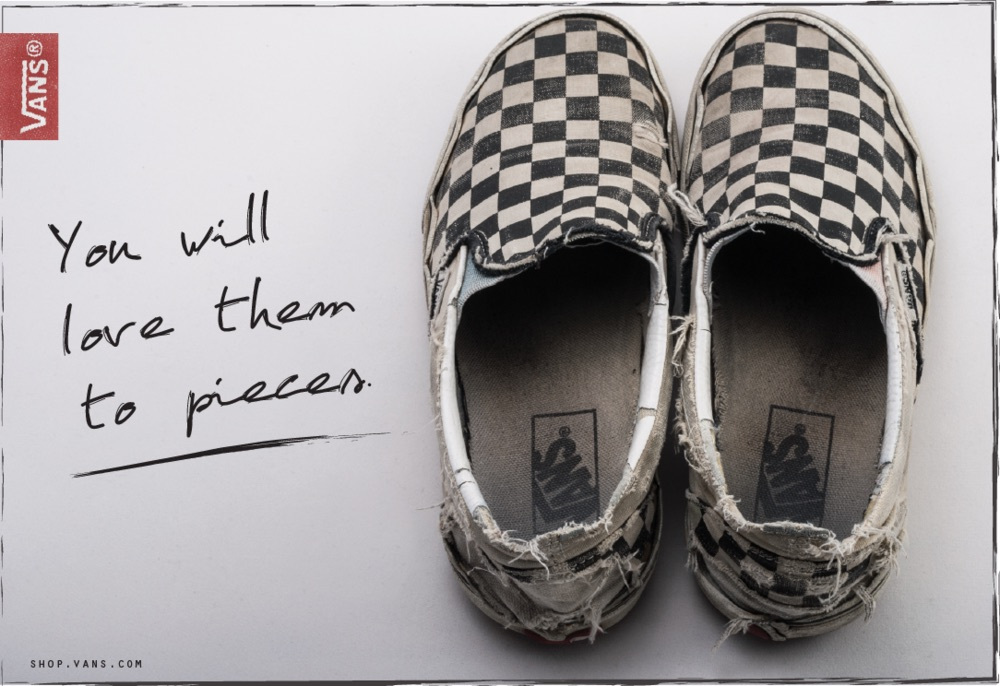 VANS®
You will
love them
to pieces.
VANS®
VANS®
SHOP.VANS.COM